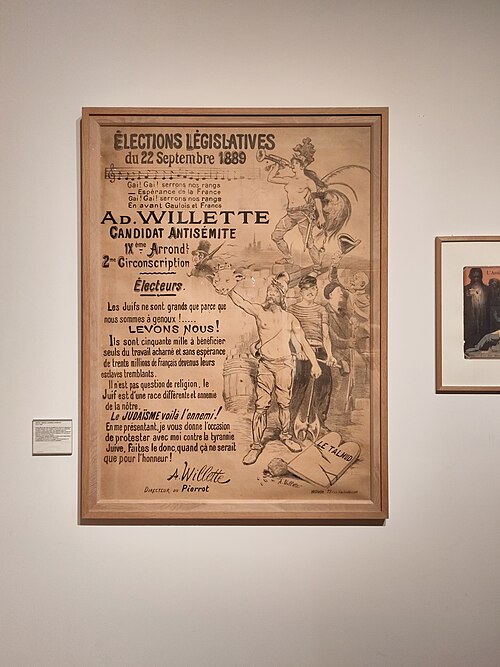 ÉLECTIONS LÉGISLATIVES
du 22 Septembre 1889
Gai! Gai! serrons nos rangs
— Espérance de la France
Gai! Gai! serrons nos rangs
En avant Gaulois et Francs
AD. WILLETTE
CANDIDAT ANTISÉMITE
IXème Arrondt
2me Circonscription
Électeurs.
Les Juifs ne sont grands que parce que
nous sommes à genoux!.....
LEVONS NOUS!
Ils sont cinquante mille à bénéficier
seuls du travail acharné et sans espérance
de trente millions de français devenus leurs
esclaves tremblants.
Il n'est pas question de religion, le
Juif est d'une race différente et ennemie
de la nôtre.
Le JUDAÏSME voilà l'ennemi!
En me présentant, je vous donne l'occasion
de protester avec moi contre la tyrannie
Juive, Faites le donc, quand ça ne serait
que pour l'honneur!
A. Willette
DIRECTEUR DU Pierrot
LE TALMUD
A. Willette